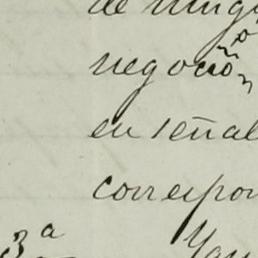 de ning
negocio
en señal
correspon
3ª